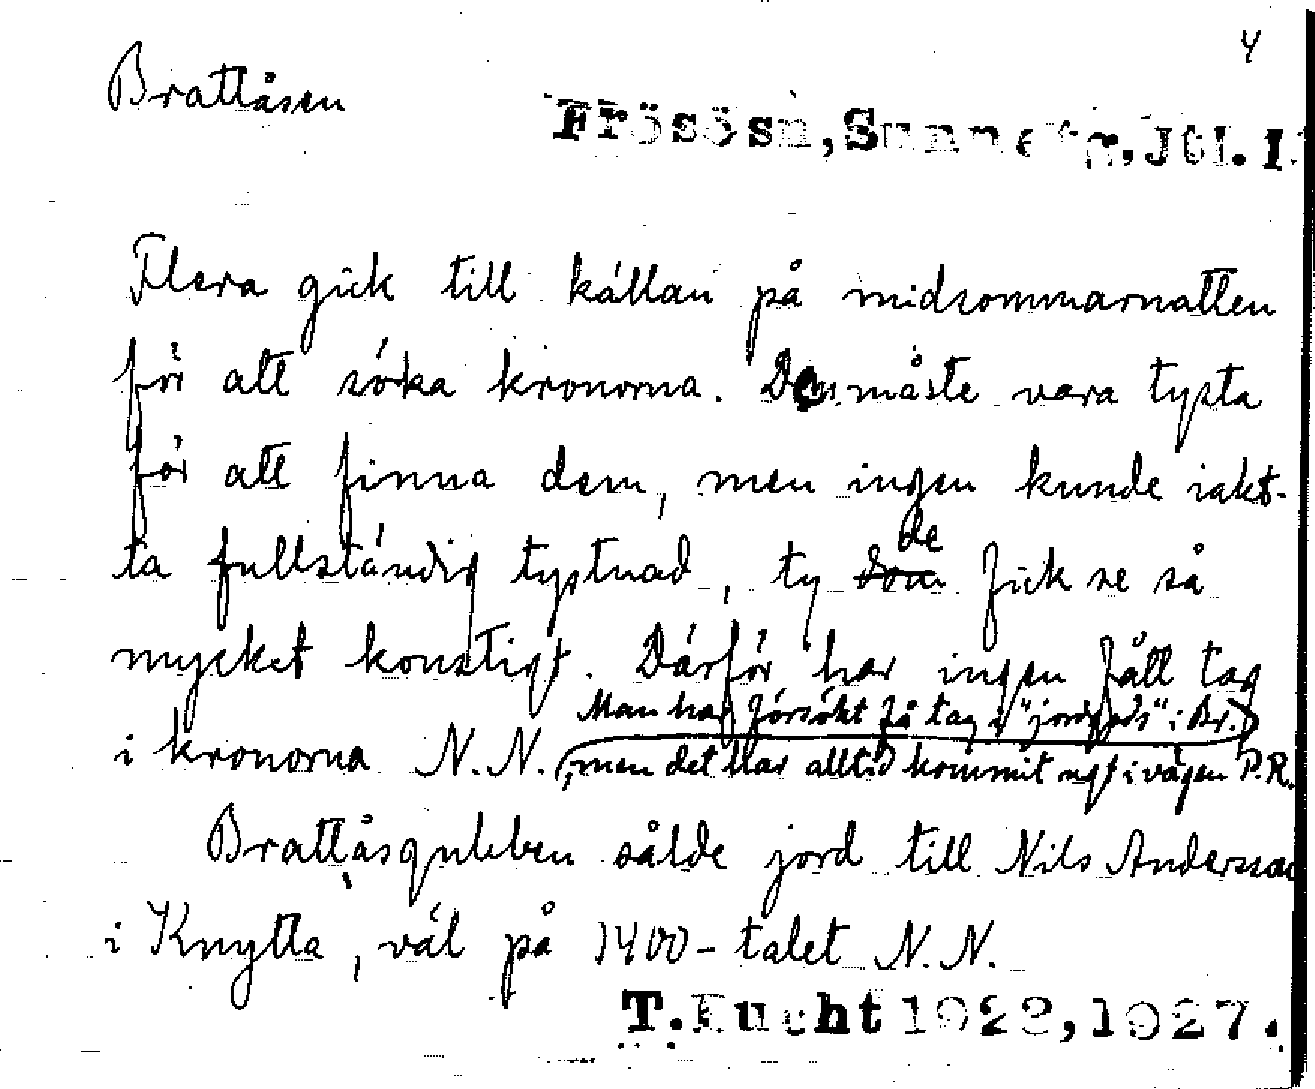 4
Brattåsen
Frösösn, Sunne tg. Jtl. l.
Flera gick till källan på midsommarnatten
för att söka kronorna. De måste vara tysta
för att finna dem, men ingen kunde iakt-
ta fullständig tystnad, ty de fick se så
mycket konstigt. Därför har ingen fått tag
Man har försökt få tag i "jordgods" i Br.,
i kronorna N.N. men det har alltid kommit ngt i vägen P.R.
Brattåsgubben sålde jord till Nils Andersson
i Knytta, väl på 1400-talet N.N.
T. Lucht 1922, 1927.